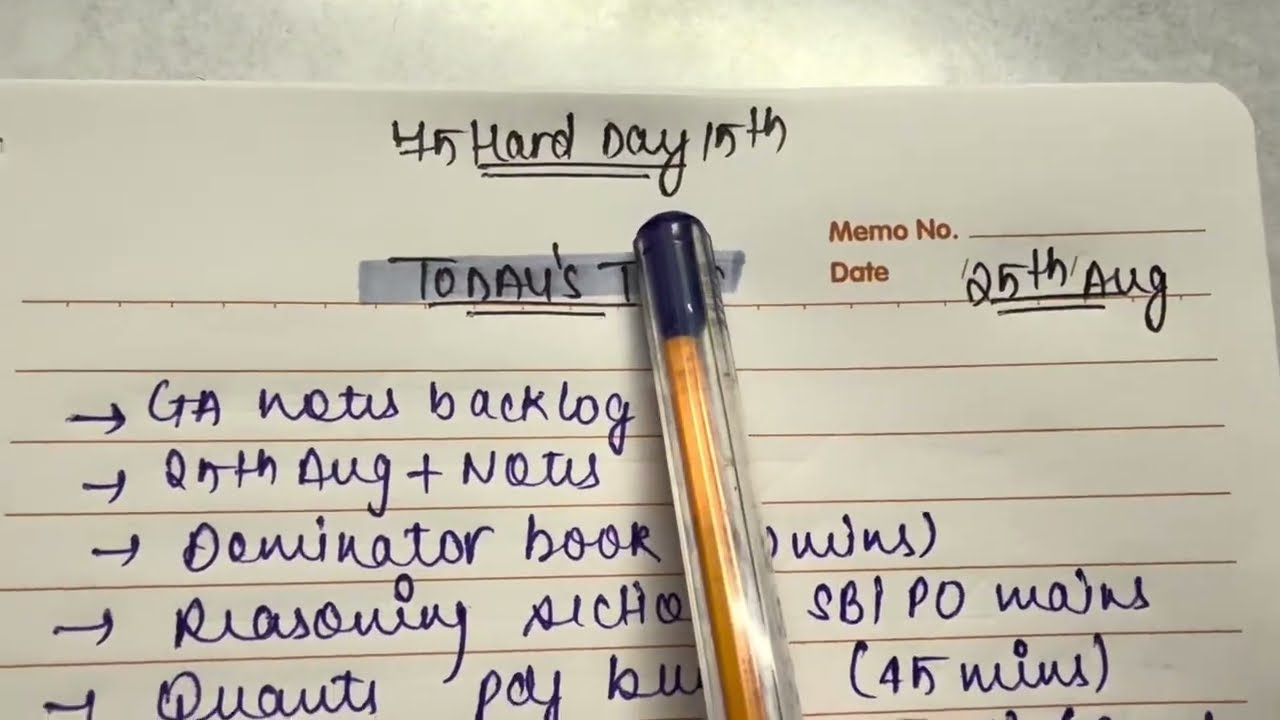 75 Hard Day 15th
Memo No.
TODAY'S
Date 25th Aug
→ GA notes backlog
→ 25th Aug + Notes
→ Dominator book mins)
→ Reasoning SBI PO mains
→ Quants pdf (45 mins)